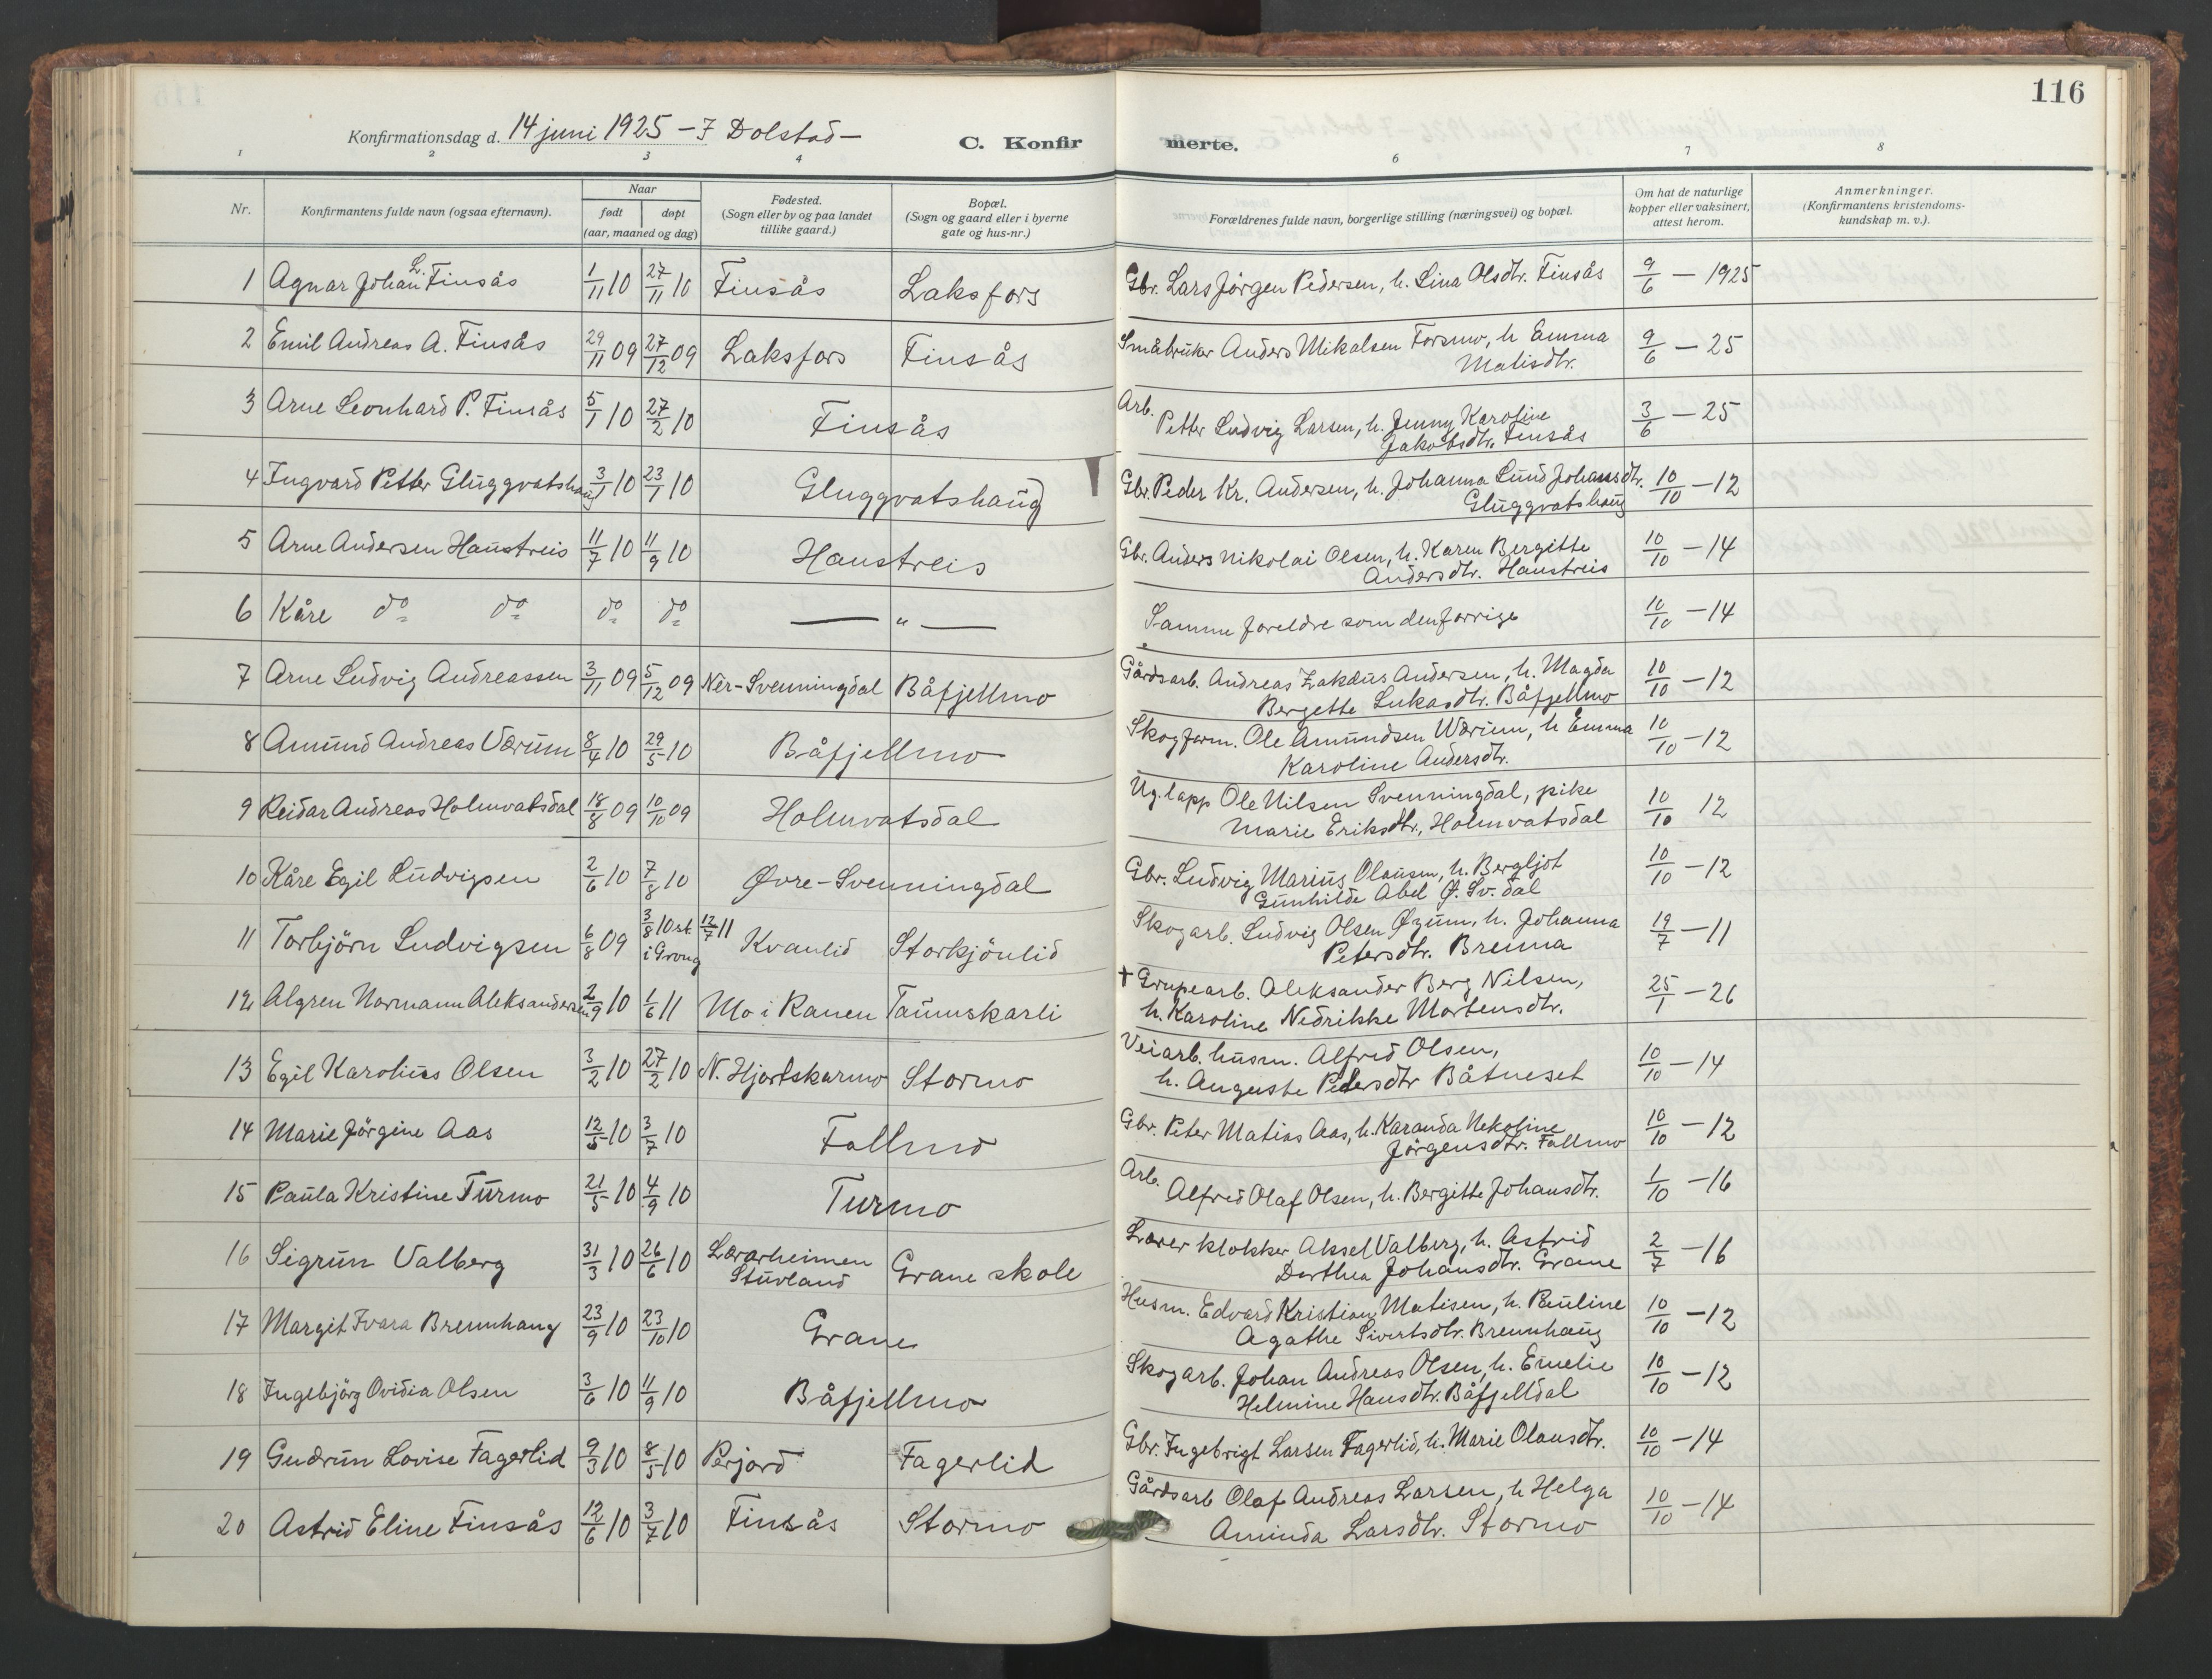 116
Konfirmationsdag d. 14 juni 1925 – I Dolstad –
C. Konfirmerte.
1 2 3 4 6 7 8
Nr. Konfirmantens fulde navn (ogsaa efternavn). Naar født døpt (aar, maaned og dag) Fødested. (Sogn eller by og paa landet tillike gaard.) Bopæl. (Sogn og gaard eller i byerne gate og hus-nr.) Forældrenes fulde navn, borgerlige stilling (næringsvei) og bopæl. Om hat de naturlige kopper eller vaksinert, attest herom. Anmerkninger. (Konfirmantens kristendoms-kundskap m. v.).
1 Agnar Johan L. Finsås 1/11 10 27/11 10 Finsås Laksfors Gbr. Lars Jörgen Pedersen, h. Lina Olsdtr. Finsås 9/6 – 1925
2 Emil Andreas A. Finsås 29/11 09 27/12 09 Laksfors Finsås Småbruker Anders Mikalsen Forsmo, h Emma
Matisdtr. 9/6 – 25
3 Arne Leonhard P. Finsås 5/1 10 27/2 10 Finsås Arb. Petter Ludvig Larsen, h. Jenny Karoline
Jakobsdtr. Finsås 3/6 – 25
4 Ingvard Petter Gluggvatshaug 3/1 10 23/1 10 Gluggvatshaug Gbr. Peder Kr. Andersen, h. Johanna Lund Johansdtr.
Gluggvatshaug 10/10 – 12
5 Arne Andersen Haustreis 11/7 10 11/9 10 Haustreis Gbr. Anders Nikolai Olsen, h. Karen Bergitte
Andersdtr. Haustreis 10/10 – 14
6 Kåre do do do do — " — Samme foreldre som den forrige 10/10 – 14
7 Arne Ludvig Andreassen 3/11 09 5/12 09 Ner-Svenningdal Båfjellmo Gårdsarb. Andreas Zakæus Andersen, h. Magda
Bergette Lukasdtr. Båfjellmo 10/10 – 12
8 Amund Andreas Værum 8/4 10 29/5 10 Båfjellmo Skogform. Ole Amundsen Wærum, h Emma
Karoline Andersdtr. 10/10 – 12
9 Reidar Andreas Holmvatsdal 18/8 09 10/10 09 Holmvatsdal Ug. lapp Ole Nilsen Svenningdal, pike
Marie Eriksdtr., Holmvatsdal 10/10 12
10 Kåre Egil Ludvigsen 2/6 10 7/8 10 Øvre-Svenningdal Gbr. Ludvig Marius Olausen, h. Bergljot
Gunhilde Abel Ø. Sv. dal 10/10 – 12
11 Torbjörn Ludvigsen 6/8 09 3/8 10 st. 12/7 11
i Grong Kvanlid Storkjönlid Skogarb. Ludvig Olsen Øzum, h. Johanna
Petersdtr. Breima 19/7 – 11
12 Algren Normann Aleksandersen 2/9 10 1/6 11 Mo i Ranen Taumskarli † Grupearb. Aleksander Berg Nilsen,
h. Karoline Nedrikke Mortensdtr. 25/1 – 26
13 Egil Karolius Olsen 3/2 10 27/2 10 N. Hjortskarmo Stormo Veiarb. husm. Alfred Olsen,
h. Auguste Pedersdtr Båtneset 10/10 – 14
14 Marie Jörgine Aas 12/5 10 3/7 10 Fallmo Gbr. Peter Matias Aas, h. Karanda Nekoline
Jörgensdtr. Fallmo 10/10 – 12
15 Paula Kristine Turmo 21/5 10 4/9 10 Turmo Arb. Alfred Olaf Olsen, h. Bergitte Johansdtr. 1/10 – 16
16 Sigrun Valberg 31/3 10 26/6 10 Lærerheimen
Stuvland Grane skole Lærer klokker Aksel Valberg, h. Astrid
Dorthea Johansdtr. Grane 2/7 – 16
17 Margit Ivara Brennhaug 23/9 10 23/10 10 Grane Husm. Edvard Kristian Matisen, h. Pauline
Agathe Sivertsdtr. Brennhaug 10/10 – 12
18 Ingebjörg Ovidia Olsen 3/6 10 11/9 10 Båfjellmo Skogarb. Johan Andreas Olsen, h. Emelie
Helmine Hansdtr. Båfjelldal 10/10 – 12
19 Gudrun Lovise Fagerlid 9/3 10 8/5 10 Perjord Fagerlid Gbr. Ingebrigt Larsen Fagerlid, h. Marie Olausdtr. 10/10 – 14
20 Astrid Eline Finsås 12/6 10 3/7 10 Finsås Stormo Gårdsarb Olaf Andreas Larsen, h Helga
Aminda Larsdtr. Stormo 10/10 – 14